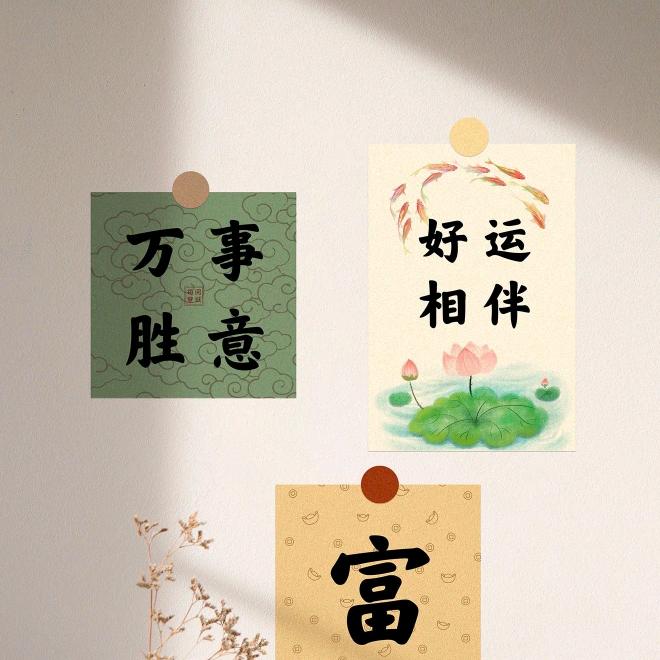 万事
胜意
好运
相伴
富